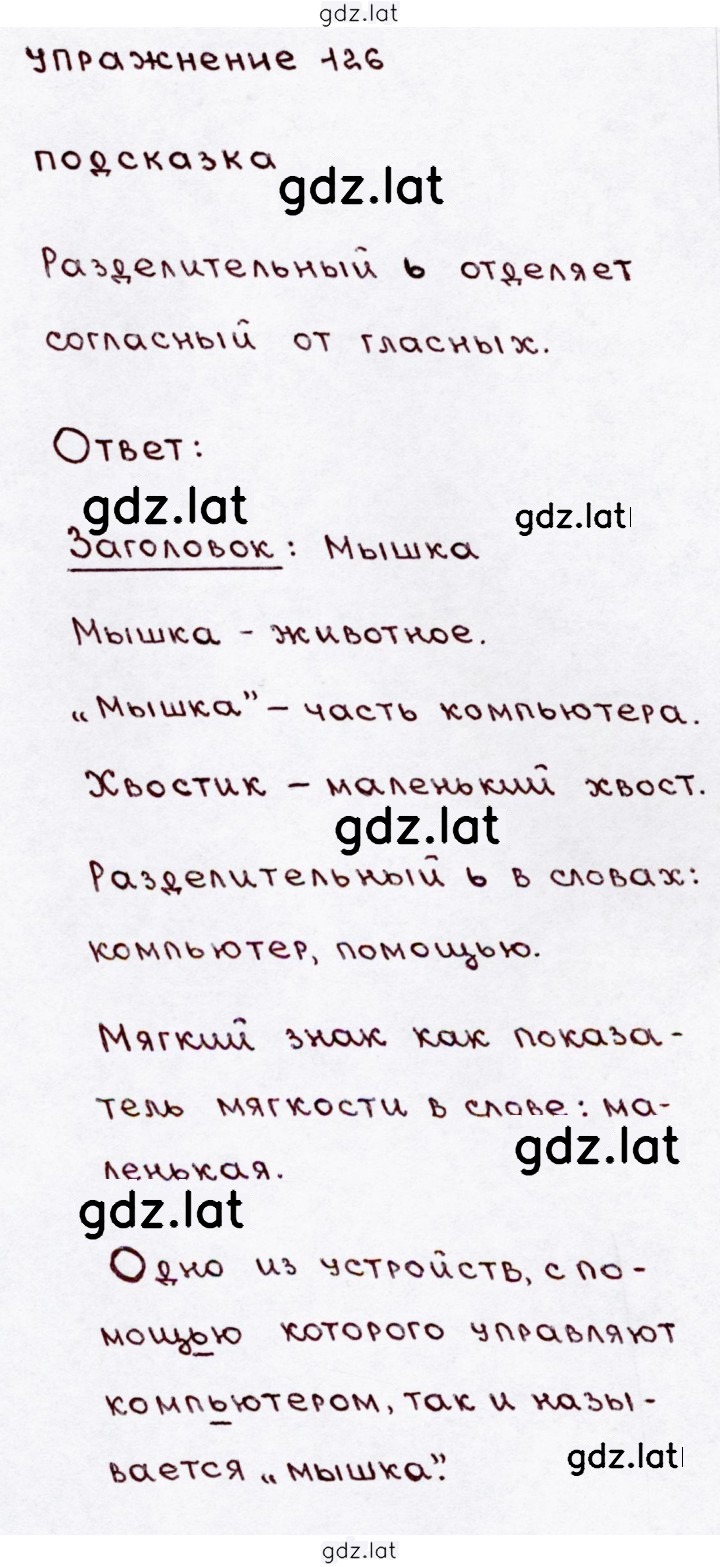 gdz.lat
упражнение 126
подсказка
gdz.lat
Разделительный ь отделяет
согласный от гласных.
Ответ:
gdz.lat
gdz.lat
Заголовок: Мышка
Мышка - животное.
„Мышка” – часть компьютера.
Хвостик – маленький хвост.
gdz.lat
Разделительный ь в словах:
компьютер, помощью.
Мягкий знак как показа-
тель мягкости в слове: ма-
gdz.lat
ленькая.
gdz.lat
Одно из устройств, с по-
мощью которого управляют
компьютером, так и назы-
вается „мышка”.
gdz.lat
gdz.lat